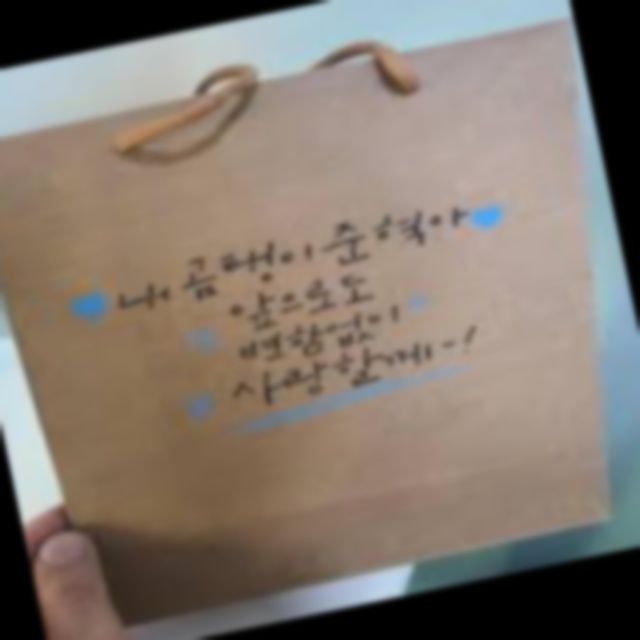 내 곰팽이 준혁아
앞으로도
변함없이
사랑할께~!